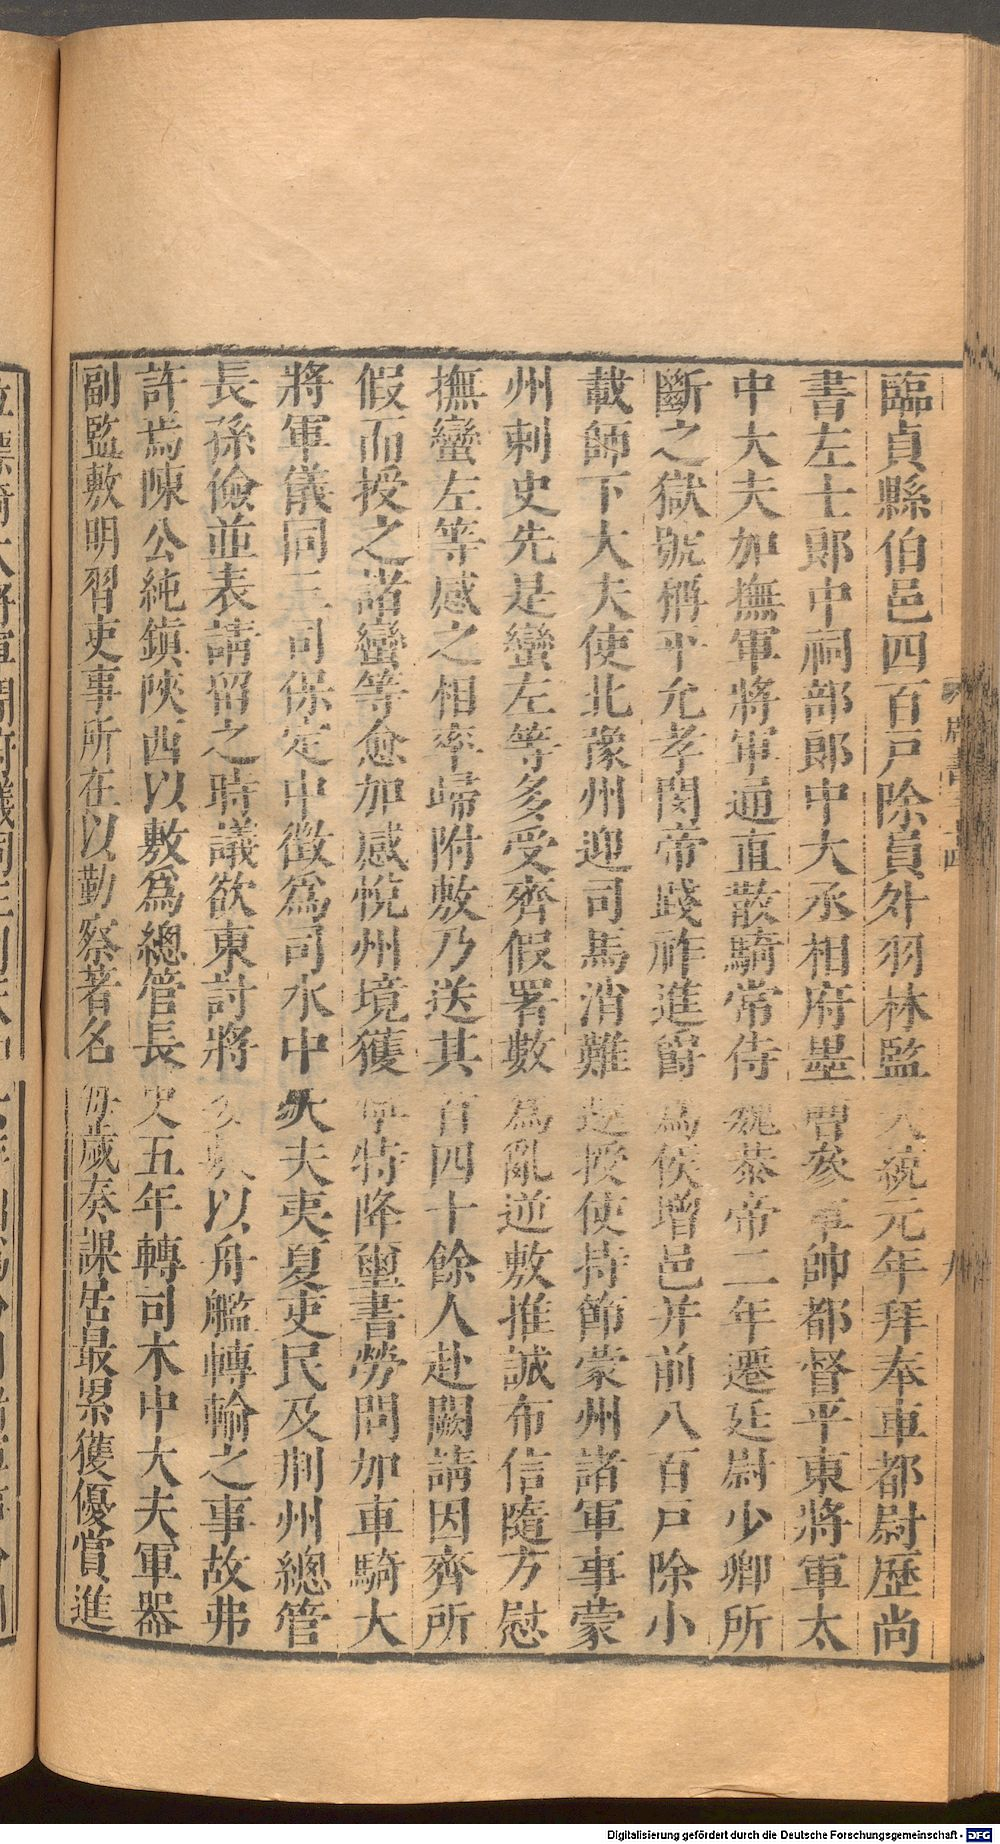 臨貞縣伯邑四百戸除員外羽林監大統元年拜奉車都尉歷尚
書左士郎中祠部郎中大丞相府墨曹參軍帥都督平東將軍太
中大夫加撫軍將軍通直散騎常侍魏恭帝二年遷廷尉少卿所
斷之獄號稱平允孝閔帝踐祚進爵為侯增邑并前八百戸除小
載師下大夫使北豫州迎司馬消難還授使持節蒙州諸軍事蒙
州刺史先是蠻左等多受齊假署數為亂逆敷推誠布信隨方慰
撫蠻左等感之相率歸附敷乃送其首四十餘人赴闕請因齊所
假而授之諸蠻等愈加感悅州境獲寧特降璽書勞問加車騎大
將軍儀同三司保定中徵為司水中大夫夷夏吏民及荆州總管
長孫儉並表請留之時議欲東討將委敷以舟艦轉輸之事故弗
許焉陳公純鎮陝西以敷為總管長史五年轉司木中大夫軍器
副監敷明習吏事所在以勤察著名每歲奏課居最累獲優賞進
九
Digitalisierung gefördert durch die Deutsche Forschungsgemeinschaft - DFG